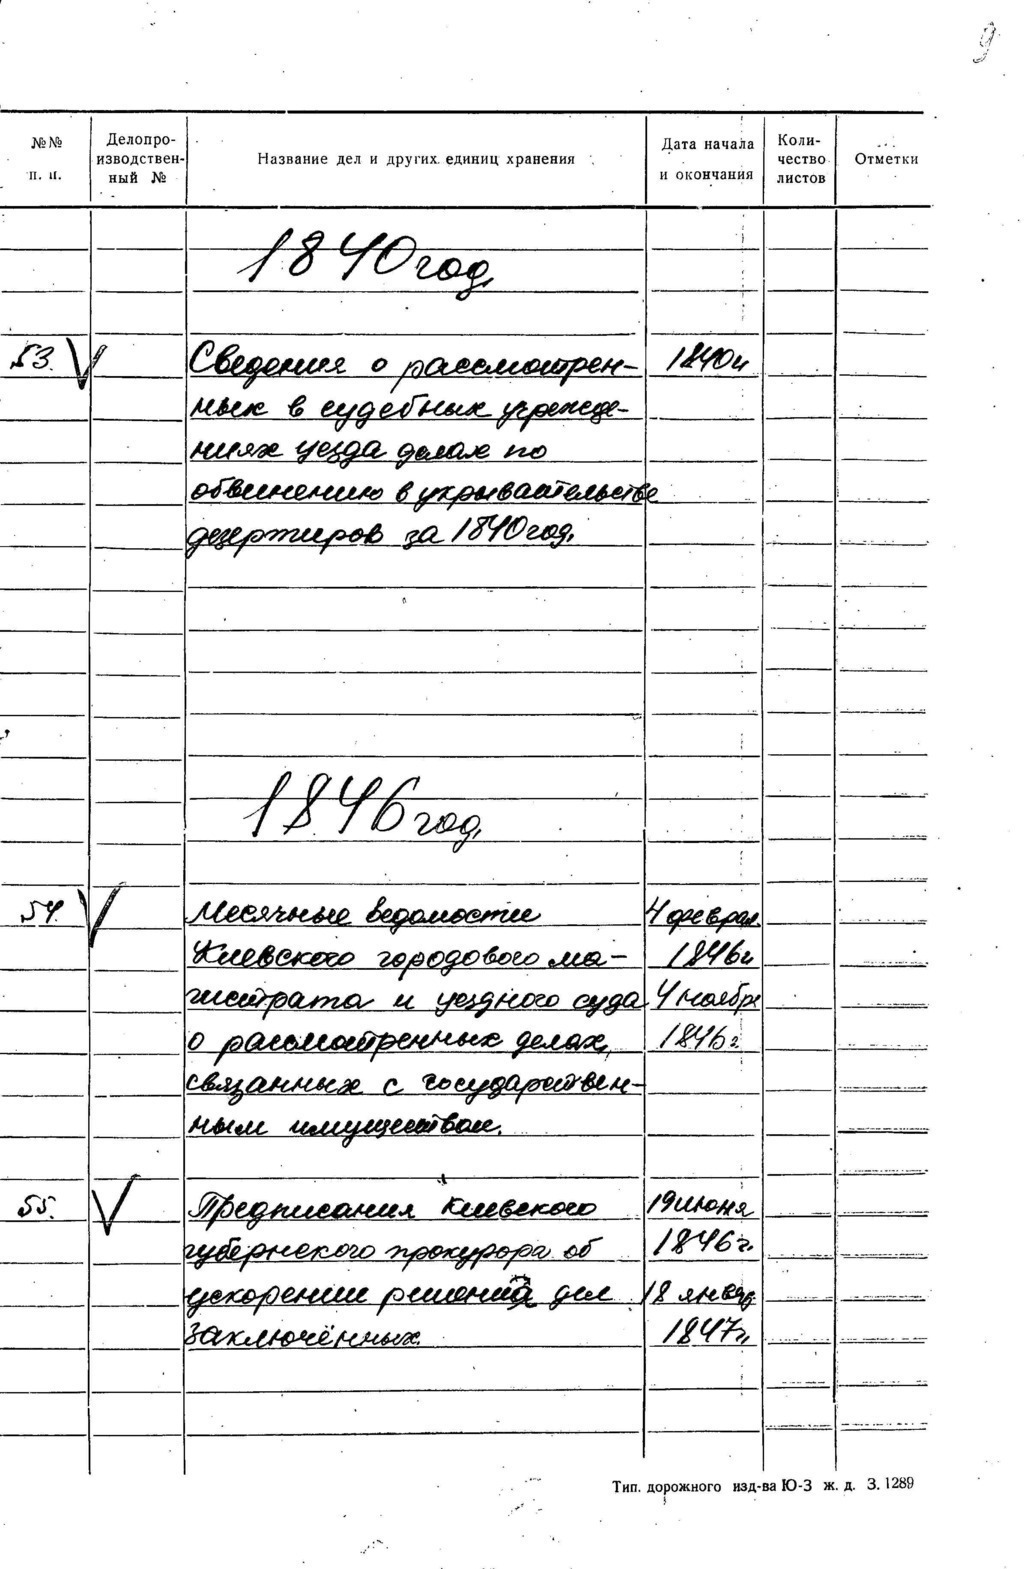 9
№№ п. п.
Делопро-
изводствен-
ный №
Название дел и других единиц хранения
Дата начала
и окончания
Коли-
чество
листов
Отметки
1840 год.
53. Сведения о рассмотрен- 1840г
ных в судебных учрежде-
ниях уезда делах по
обвинению в укрывательстве
дезертиров за 1840 год.
1846 год.
54. Месячные ведомости 4 феврал.
Киевского городового ма- 1846г
гистрата и уездного суда 4 ноября
о рассмотренных делах, 1846г
связанных с государствен-
ным имуществом.
55. Предписания Киевского 19 июня
губернского прокурора об 1846г.
ускорении решений дел 18 январ
заключённых. 1847г.
Тип. дорожного изд-ва Ю-З ж. д. З. 1289